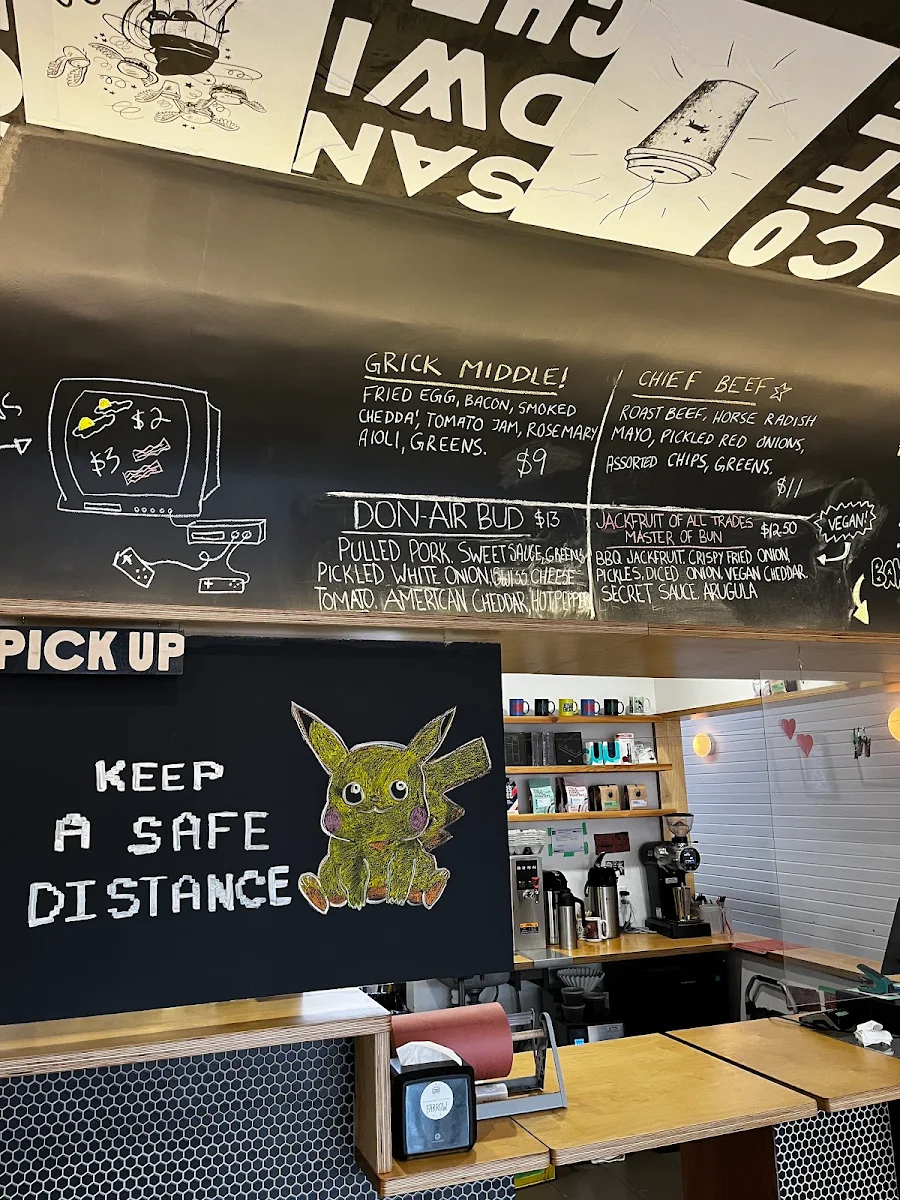 SAN
DWI
CHE
CO
FF
$2
$3
GRICK MIDDLE!
FRIED EGG, BACON, SMOKED
CHEDDA', TOMATO JAM, ROSEMARY
AIOLI, GREENS.
$9
CHIEF BEEF
ROAST BEEF, HORSE RADISH
MAYO, PICKLED RED ONIONS,
ASSORTED CHIPS, GREENS.
$11
DON-AIR BUD $13
PULLED PORK, SWEET SAUCE, GREENS
PICKLED WHITE ONION, SWISS CHEESE
TOMATO. AMERICAN CHEDDAR, HOT PEPPER
JACKFRUIT OF ALL TRADES $12.50
MASTER OF BUN
BBQ JACKFRUIT, CRISPY FRIED ONION,
PICKLES, DICED ONION, VEGAN CHEDDAR.
SECRET SAUCE, ARUGULA
VEGAN!
PICK UP
KEEP
A SAFE
DISTANCE
BUNN
FARROW